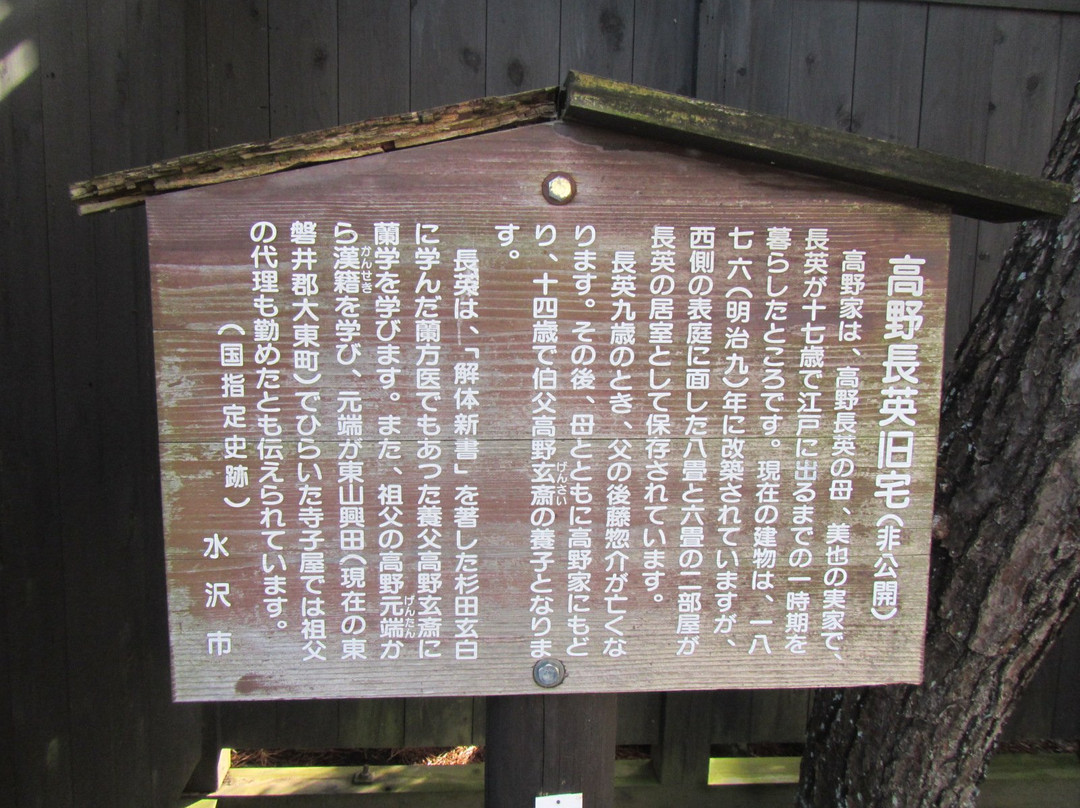 高野長英旧宅(非公開)
高野家は、高野長英の母、美也の実家で、
長英が十七歳で江戸に出るまでの一時期を
暮らしたところです。現在の建物は、一八
七六(明治九)年に改築されていますが、
西側の表庭に面した八畳と六畳の二部屋が
長英の居室として保存されています。
長英九歳のとき、父の後藤惣介が亡くな
ります。その後、母とともに高野家にもど
り、十四歳で伯父高野玄斎の養子となりま
げんさい
す。
長英は、「解体新書」を著した杉田玄白
に学んだ蘭方医でもあった養父高野玄斎に
蘭学を学びます。また、祖父の高野元端か
げんたん
ら漢籍を学び、元端が東山興田(現在の東
かんせき
磐井郡大東町)でひらいた寺子屋では祖父
の代理も勤めたとも伝えられています。
(国指定史跡)
水沢市